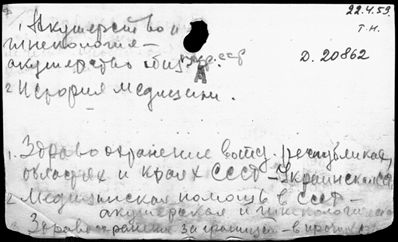 22.4.59.
1. Акушерство и
гинекология —
акушерство
Т.Н.
Д. 20862
2 История медицины.
1. Здравоохранение в отд. республиках,
областях и краях СССР — Украинская
2 Медицинская помощь в СССР —
акушерская и гинекологическая
3 Здравоохранение за границей —